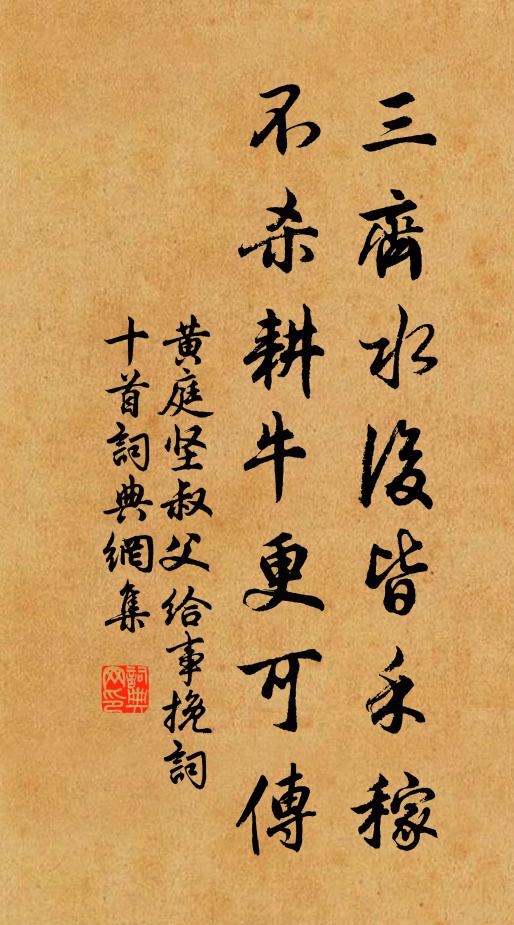 三齊水後皆禾稼
不杀耕牛更可傳
黄庭坚叔父给事挽詞
十首詞典網集
詞典
网印